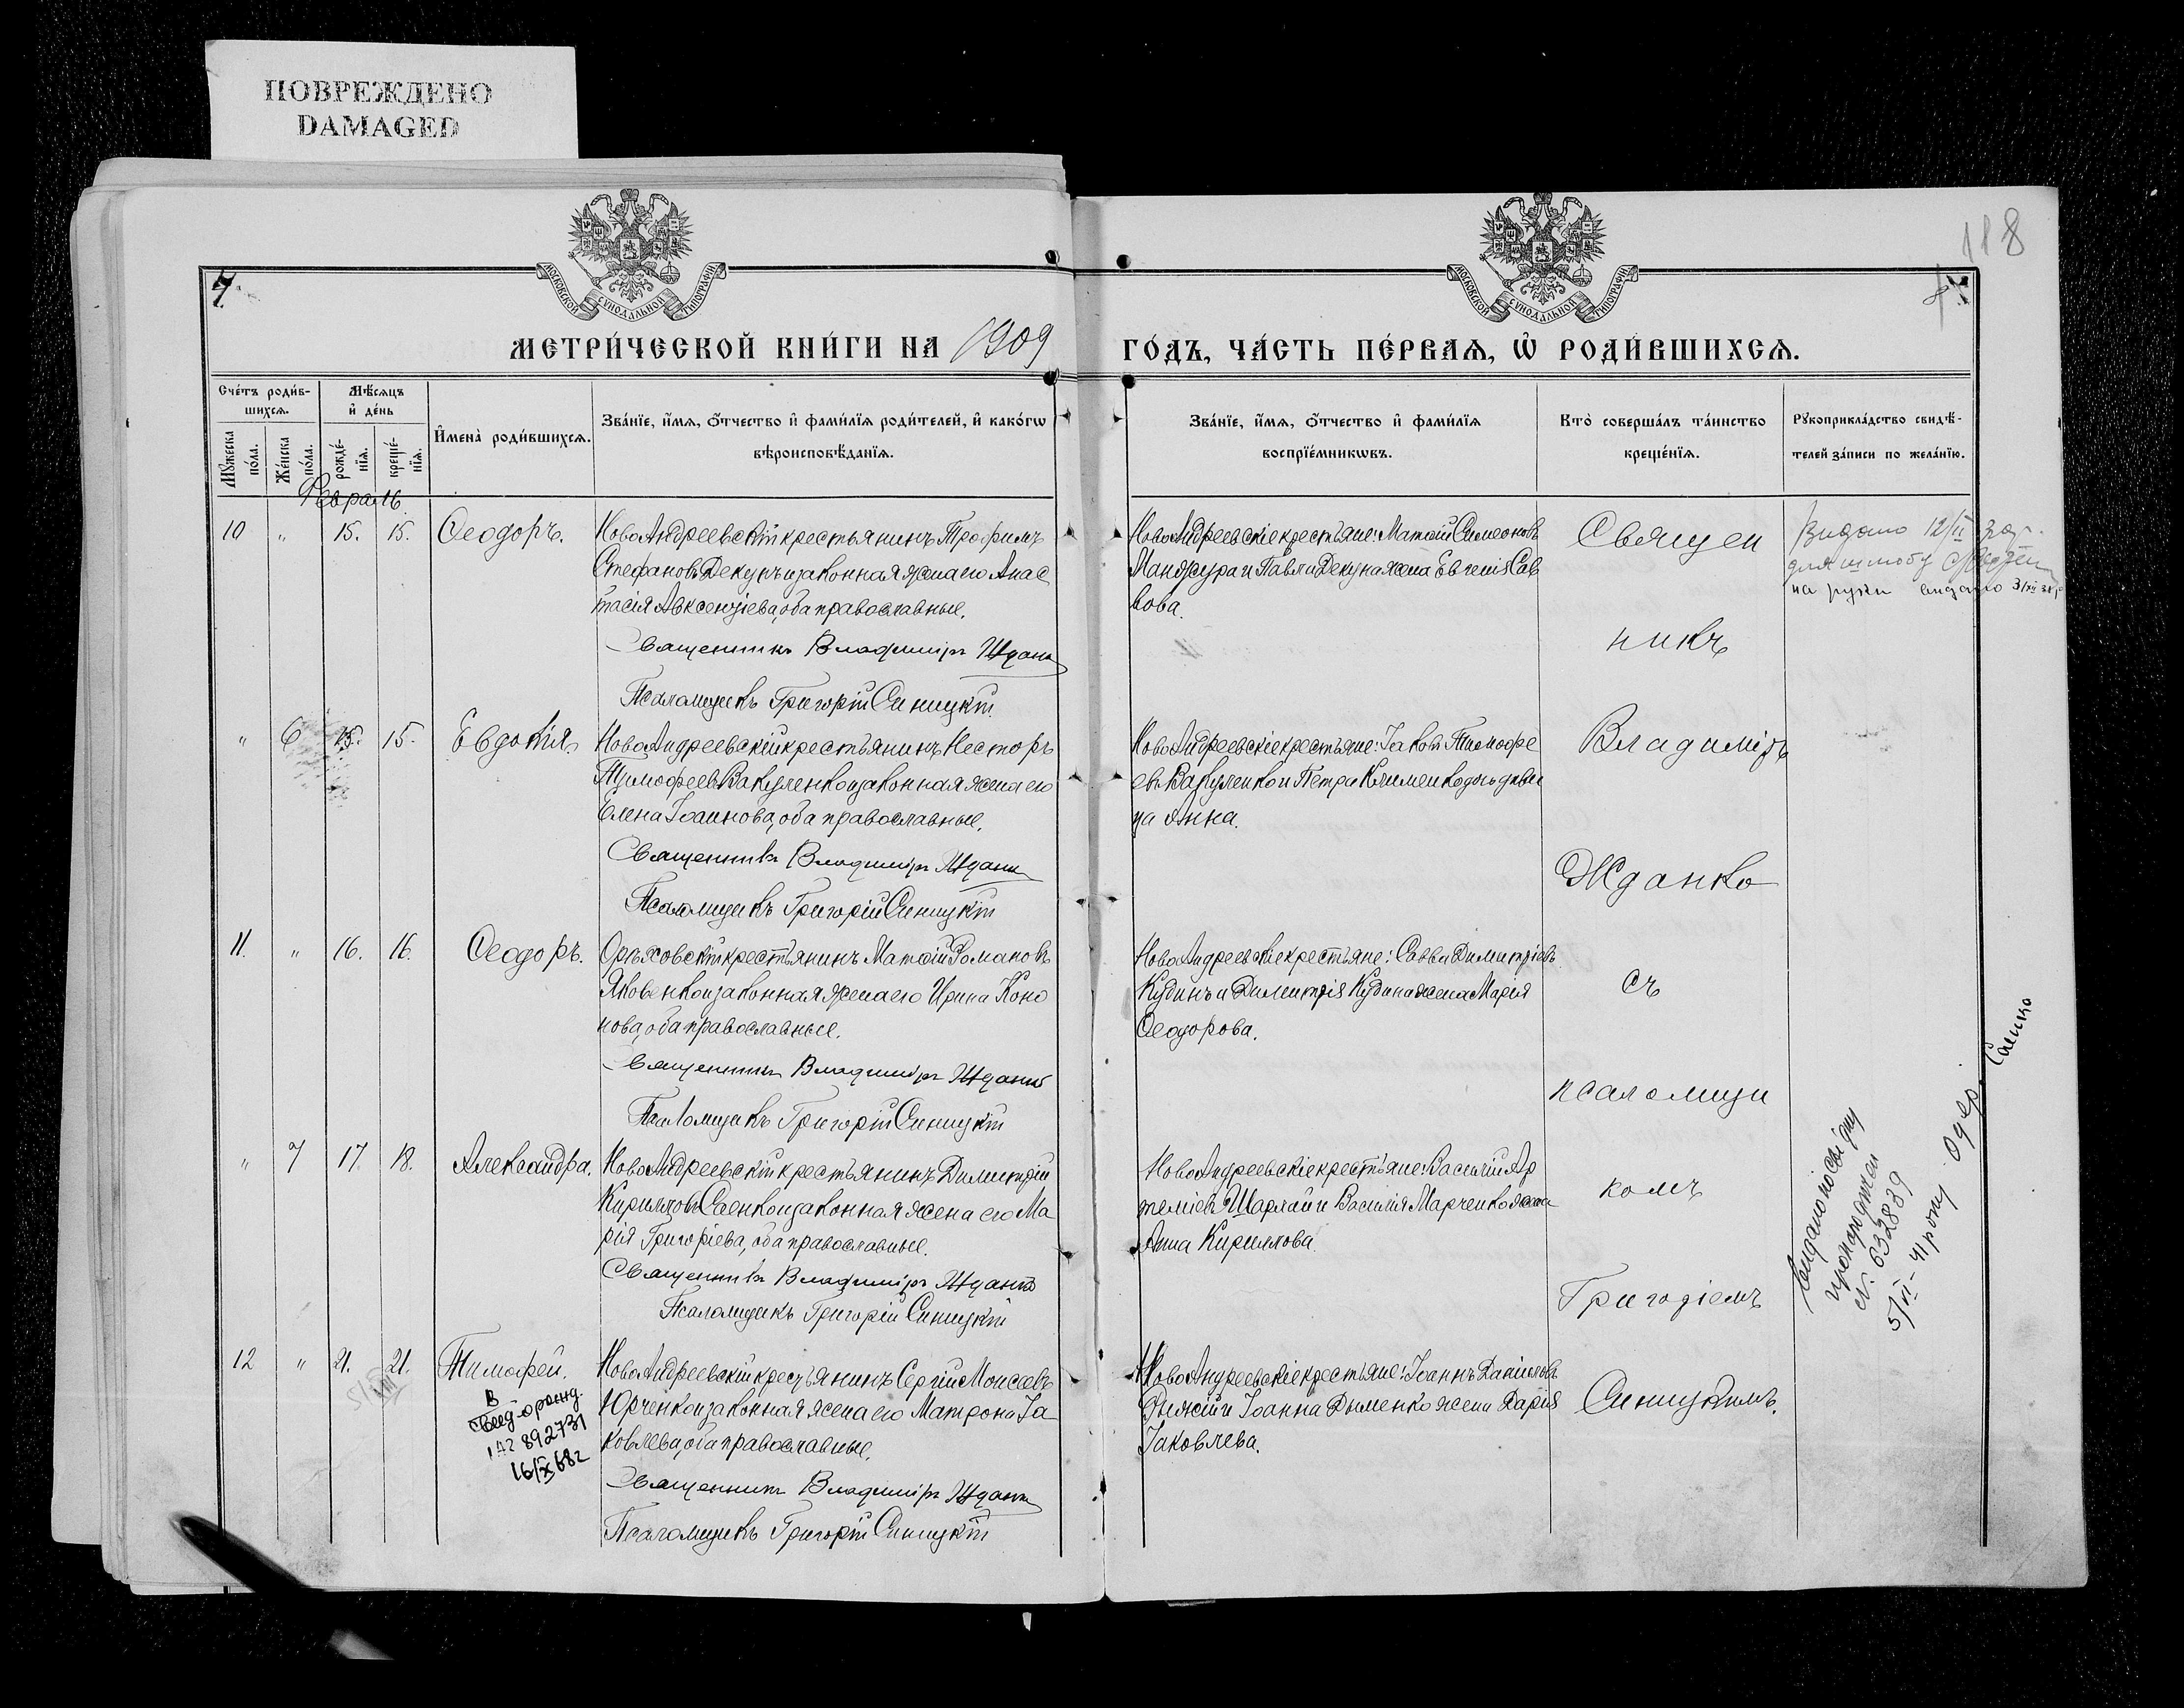 ПОВРЕЖДЕНО
DAMAGED
118
7.
МОСКОВСКОЙ СѴНОДАЛЬНОЙ ТИПОГРАФІИ
МОСКОВСКОЙ СѴНОДАЛЬНОЙ ТИПОГРАФІИ
МЕТРИ́ЧЕСКОЙ КНИ́ГИ НА 1909
ГО́ДЪ, ЧА́СТЬ ПЕ́РВАѦ, Ѡ҆ РОДИ́ВШИХСѦ.
Сче́тъ роди́в-
шихсѧ.
Мѣ́сѧцъ
и҆ де́нь
Мꙋ́жеска
по́ла.
Же́нска
по́ла.
рожде́-
нїѧ.
креще́-
нїѧ.
И҆мена̀ роди́вшихсѧ.
Зва́нїе, и҆́мѧ, ѻ҆́тчество и҆ фами́лїѧ роди́телей, и҆ како́гѡ
вѣроисповѣ́данїѧ.
Зва́нїе, и҆́мѧ, ѻ҆́тчество и҆ фами́лїѧ
воспрїе́мникѡвъ.
Кто̀ соверша́лъ та́инство
креще́нїѧ.
Рꙋкоприкла́дство свидѣ́-
телей за́писи по жела́нїю.
Февраль
10 " 15. 15. Ѳеодоръ.
НовоАндреевскій крестьянинъ Трофимъ
Стефановъ Декунъ и законная жена его Анас
тасія Авксентіева, оба православные.
Священникъ Владиміръ Ждан
Псаломщикъ Григорій Синицкій
НовоАндреевскіе крестьяне: Матѳій Симеоновъ
Манжура и Павла Декуна жена Евгенія Сав
вова.
Видано 12/II
на руки видано
" 6 15. 15. Евдокія.
НовоАндреевскій крестьянинъ Несторъ
Тимофеевъ Вакуленко и законная жена его
Елена Іоаннова, оба православные.
Священникъ Владиміръ Ждан
Псаломщикъ Григорій Синицкій
НовоАндреевскіе крестьяне: Іаковъ Тимофе
евъ Вакуленко и Петра Клименко дочь дѣви
ца Анна.
11. " 16. 16. Ѳеодоръ.
Орѣховскій крестьянинъ Матѳій Романовъ
Яковенко и законная жена его Ирина Коно
нова, оба православные.
Священникъ Владиміръ Ждан
Псаломщикъ Григорій Синицкій
НовоАндреевскіе крестьяне: Савва Димитріевъ
Кудинъ и Димитрія Кудина жена Марія
Ѳеодорова.
" 7 17. 18. Александра.
НовоАндреевскій крестьянинъ Димитрій
Кирилловъ Саенко и законная жена его Ма
рія Григоріева, оба православные.
Священникъ Владиміръ Ждан
Псаломщикъ Григорій Синицкій
НовоАндреевскіе крестьяне: Василій Ар
теміевъ Шарлай и Василія Марченко жена
Анна Кириллова.
Видано посвідку
про народжен
№ 632889
5/VI-41 року. Одер. Саенко
12 " 21. 21. Тимофей.
НовоАндреевскій крестьянинъ Сергій Моисеевъ
Юрченко и законная жена его Матрона Іа
ковлева, оба православные.
Священникъ Владиміръ Ждан
Псаломщикъ Григорій Синицкій
892731
16/X 68г
НовоАндреевскіе крестьяне: Іоаннъ Даніиловъ
Рыжій и Іоанна Дыменко жена Дарія
Іаковлева.
Священ
никъ
Владиміръ
Жданко
съ
псаломщи
комъ
Григоріемъ
Синицкимъ.